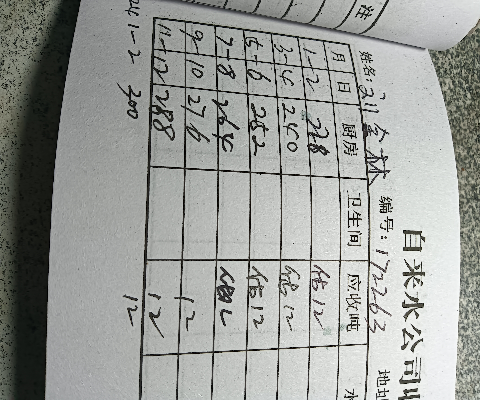 注
自来水公司
姓名: 刘金林 编号: 172263 地
月 日 厨房 卫生间 应收吨 水
1-2 228 估12
3-4 240 估12
5-6 252 估12
7-8 264 估12
9-10 276 12
11-12 288 12
24 1-2 300 12